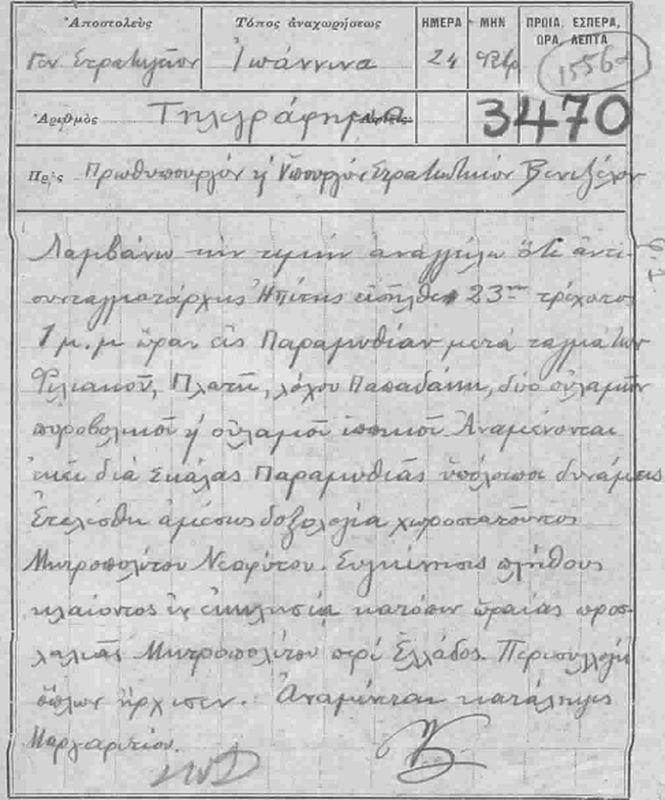 Ἀποστολεὺς Τόπος ἀναχωρήσεως ΗΜΕΡΑ ΜΗΝ ΠΡΩΙΑ, ΕΣΠΕΡΑ, ΩΡΑ, ΛΕΠΤΑ
Γεν. Στρατηγεῖον Ἰωάννινα 24 Φεβρ 1556
Ἀριθμὸς Τηλεγράφημα 3470
Πρὸς Πρωθυπουργόν ἤ Ὑπουργόν Στρατιωτικῶν Βενιζέλον
Λαμβάνω τήν τιμήν ἀναγγείλω ὅτι ἀντι-
συνταγματάρχης Ἠπίτης εἰσῆλθε 23ην τρέχοντος
1 μ.μ ὥραν εἰς Παραμυθίαν μετά ταγμάτων
Φιλιακοῦ, Πλατῆ, λόχου Παπαδάκη, δύο οὐλαμῶν
πυροβολικοῦ ἤ οὐλαμοῦ ἱππικοῦ Ἀναμένονται
ἐκεῖ διά Σκάλας Παραμυθιᾶς ὑπόλοιποι δυνάμεις
Ἐτελέσθη ἀμέσως δοξολογία χωροστατοῦντος
Μητροπολίτου Νεοφύτου. Συγκίνησις πλήθους
κλαίοντος ἐν ἐκκλησίᾳ κατόπιν ὡραίας προσ-
λαλιᾶς Μητροπολίτου περί Ἑλλάδος. Περισυλλογή
ὅπλων ἤρχισεν. Ἀναμένεται κατάληψις
Μαργαριτίου.